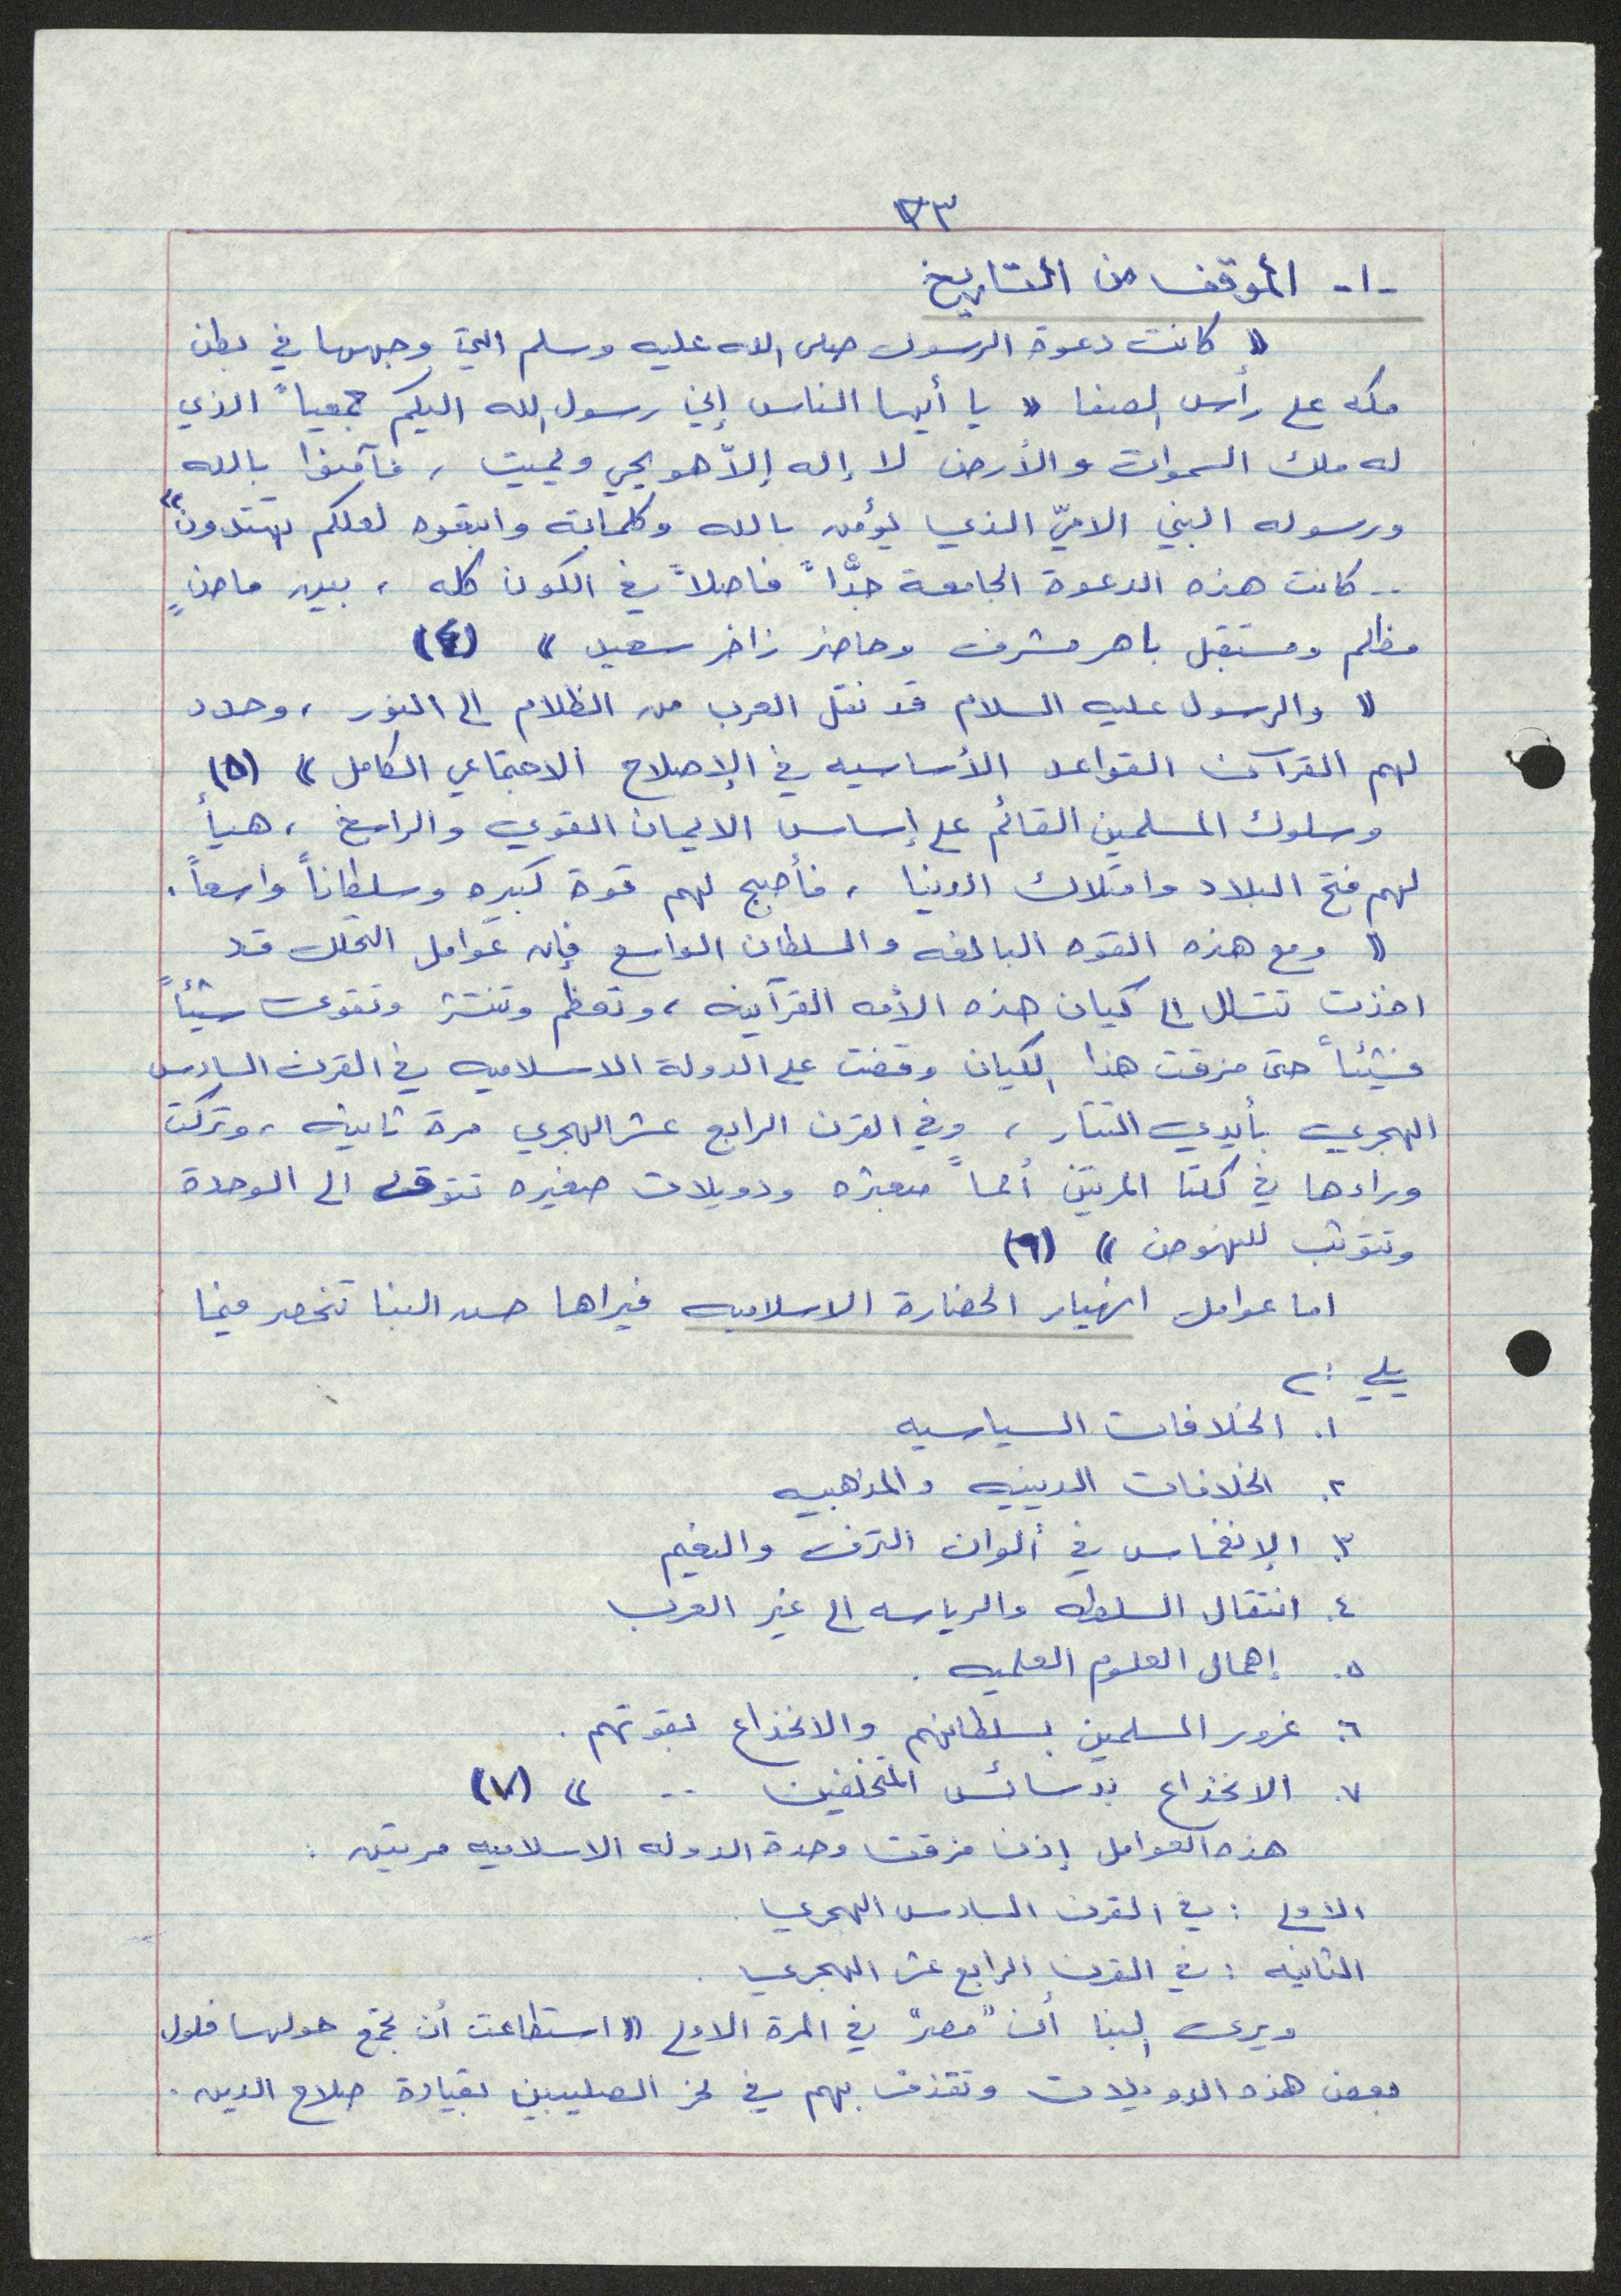 ٣٣
-١- الموقف من التاريخ
« كانت دعوة الرسول صلى الله عليه وسلم التي وجهها في بطن
مكه على رأس الصفا « يا أيها الناس إني رسول الله اليكم جميعاً الذي
له ملك السموات والأرض لا إله إلاّ هو يحي ويميت ، فآمنوا بالله
ورسوله النبي الاميّ الذي يؤمن بالله وكلماته واتبعوه لعلكم تهتدون »
.. كانت هذه الدعوة الجامعة حدّاً فاصلاً في الكون كله ، بين ماضٍ
مظلم ومستقبل باهر مشرف وحاضر زاخر سعيد » (٤)
« والرسول عليه السلام قد نقل العرب من الظلام الى النور ، وحدد
لهم القرآن القواعد الأساسيه في الإصلاح الاجتماعي الكامل » (٥)
وسلوك المسلمين القائم على إساس الايمان القوي والراسخ ، هيأ
لهم فتح البلاد وامتلاك الدنيا ، فأصبح لهم قوة كبيره وسلطاناً واسعاً .
« ومع هذه القوه البالغه والسلطان الواسع فإن عوامل التحلل قد
اخذت تتسلل الى كيان هذه الأمه القرآنيه ، وتعظم وتنتشر وتقوى شيئاً
فشيئاً حتى مزقت هذا الكيان وقضت على الدولة الاسلاميه في القرن السادس
الهجري بأيدي التتار ، وفي القرن الرابع عشر الهجري مرة ثانيه ، وتركت
وراءها في كلتا المرتين أمماً مبعثره ودويلات صغيره تتوق الى الوحدة
وتتوثب للنهوض » (٦)
اما عوامل انهيار الحضارة الاسلاميه فيراها حسن البنا تنحصر فيما
يلي :
١. الخلافات السياسيه
٢. الخلافات الدينيه والمذهبيه
٣. الإنغماس في ألوان الترف والنعيم
٤. انتقال السلطه والرياسه الى غير العرب
٥. إهمال العلوم العلميه .
٦. غرور المسلمين بسلطانهم والانخداع بقوتهم .
٧. الانخداع بدسائس المتخلفين .. » (٧)
هذه العوامل إذن مزقت وحدة الدوله الاسلاميه مرتين :
الاولى : في القرن السادس الهجري .
الثانيه : في القرن الرابع عشر الهجري .
ويرى البنا أن "مصر" في المرة الاولى « استطاعت أن تجمع حولها فلول
بعض هذه الدويلات وتقذف بهم في نحر الصليبيين بقيادة صلاح الدين .